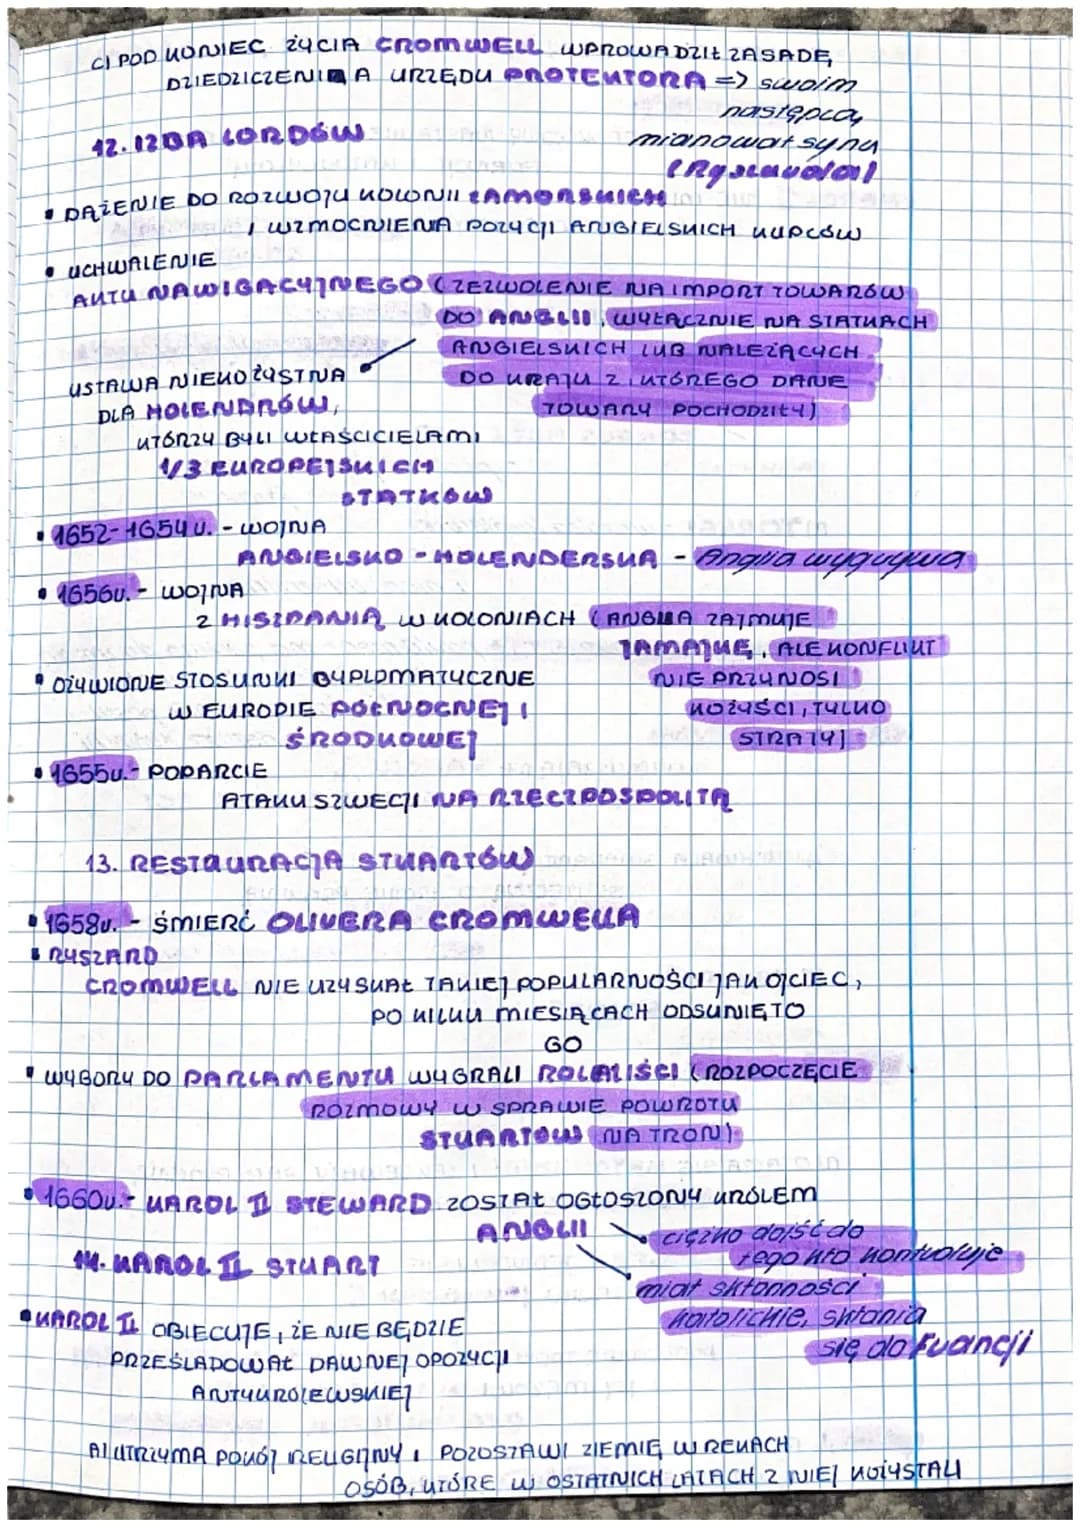 C) POD KONIEC ŻYCIA CROMWELL WPROWADZIŁ ZASADĘ
DZIEDZICZENIA URZĘDU PROTEKTORA => swoim
następcą
mianował syna
(Ryszarda)
12. IZBA LORDÓW
• DĄŻENIE DO ROZWOJU KOLONII ZAMORSKICH
I WZMOCNIENIA POZYCJI ANGIELSKICH KUPCÓW
• UCHWALENIE
AKTU NAWIGACYJNEGO (ZEZWOLENIE NA IMPORT TOWARÓW
DO ANGLII, WYŁĄCZNIE NA STATKACH
ANGIELSKICH LUB NALEŻĄCYCH
DO KRAJU Z KTÓREGO DANE
TOWARY POCHODZIŁY)
USTAWA NIEKOŻYSTNA
DLA HOLENDRÓW,
KTÓRZY BYLI WŁAŚCICIELAMI
1/3 EUROPEJSKICH
STATKÓW
• 1652-1654r. - WOJNA
ANGIELSKO - HOLENDERSKA - Anglia wygrywa
• 1656r. - WOJNA
Z HISZPANIĄ W KOLONIACH (ANGLIA ZAJMUJE
JAMAJKĘ, ALE KONFLIKT
NIE PRZYNOSI
KOŻYŚCI, TYLKO
STRATY)
• OŻYWIONE STOSUNKI DYPLOMATYCZNE
W EUROPIE PÓŁNOCNEJ I
ŚRODKOWEJ
• 1655r. - POPARCIE
ATAKU SZWECJI NA RZECZPOSPOLITĄ
13. RESTAURACJA STUARTÓW
• 1658r. - ŚMIERĆ OLIVERA CROMWELLA
• RYSZARD
CROMWELL NIE UZYSKAŁ TAKIEJ POPULARNOŚCI JAK OJCIEC,
PO KILKU MIESIĄCACH ODSUNIĘTO
GO
• WYBORY DO PARLAMENTU WYGRALI ROJALIŚCI (ROZPOCZĘCIE
ROZMOWY W SPRAWIE POWROTU
STUARTÓW NA TRON)
• 1660r. - KAROL II STEWARD ZOSTAŁ OGŁOSZONY KRÓLEM
ANGLII
ciężko dojść do
tego kto kontroluje
miał skłonności
katolickie, skłania
się do Francji
14. KAROL II STUART
• KAROL II OBIECUJE, ŻE NIE BĘDZIE
PRZEŚLADOWAŁ DAWNEJ OPOZYCJI
ANTYKRÓLEWSKIEJ
A) UTRZYMA POKÓJ RELIGIJNY I POZOSTAWI ZIEMIĘ W REKACH
OSÓB, KTÓRE W OSTATNICH LATACH Z NIEJ KOŻYSTALI